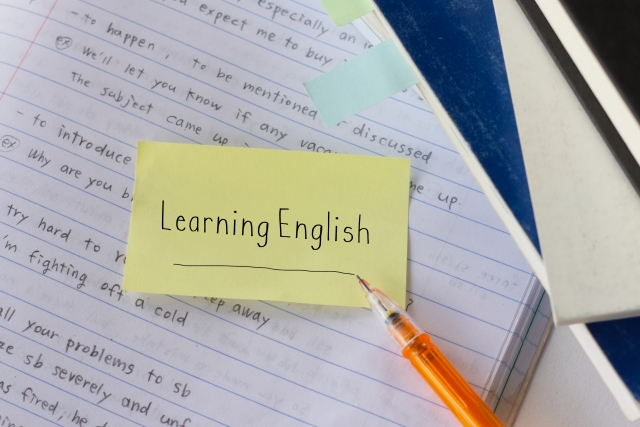 especially an
you expect me to buy
- to happen, to be mentioned, discussed
ex We'll let you know if any vaca
The subject came up me up.
- to introduce
ex Why are you b
Learning English
try hard to r
'm fighting off a cold
step away
all your problems to sb
ze sb severely and unf
as fired, he d